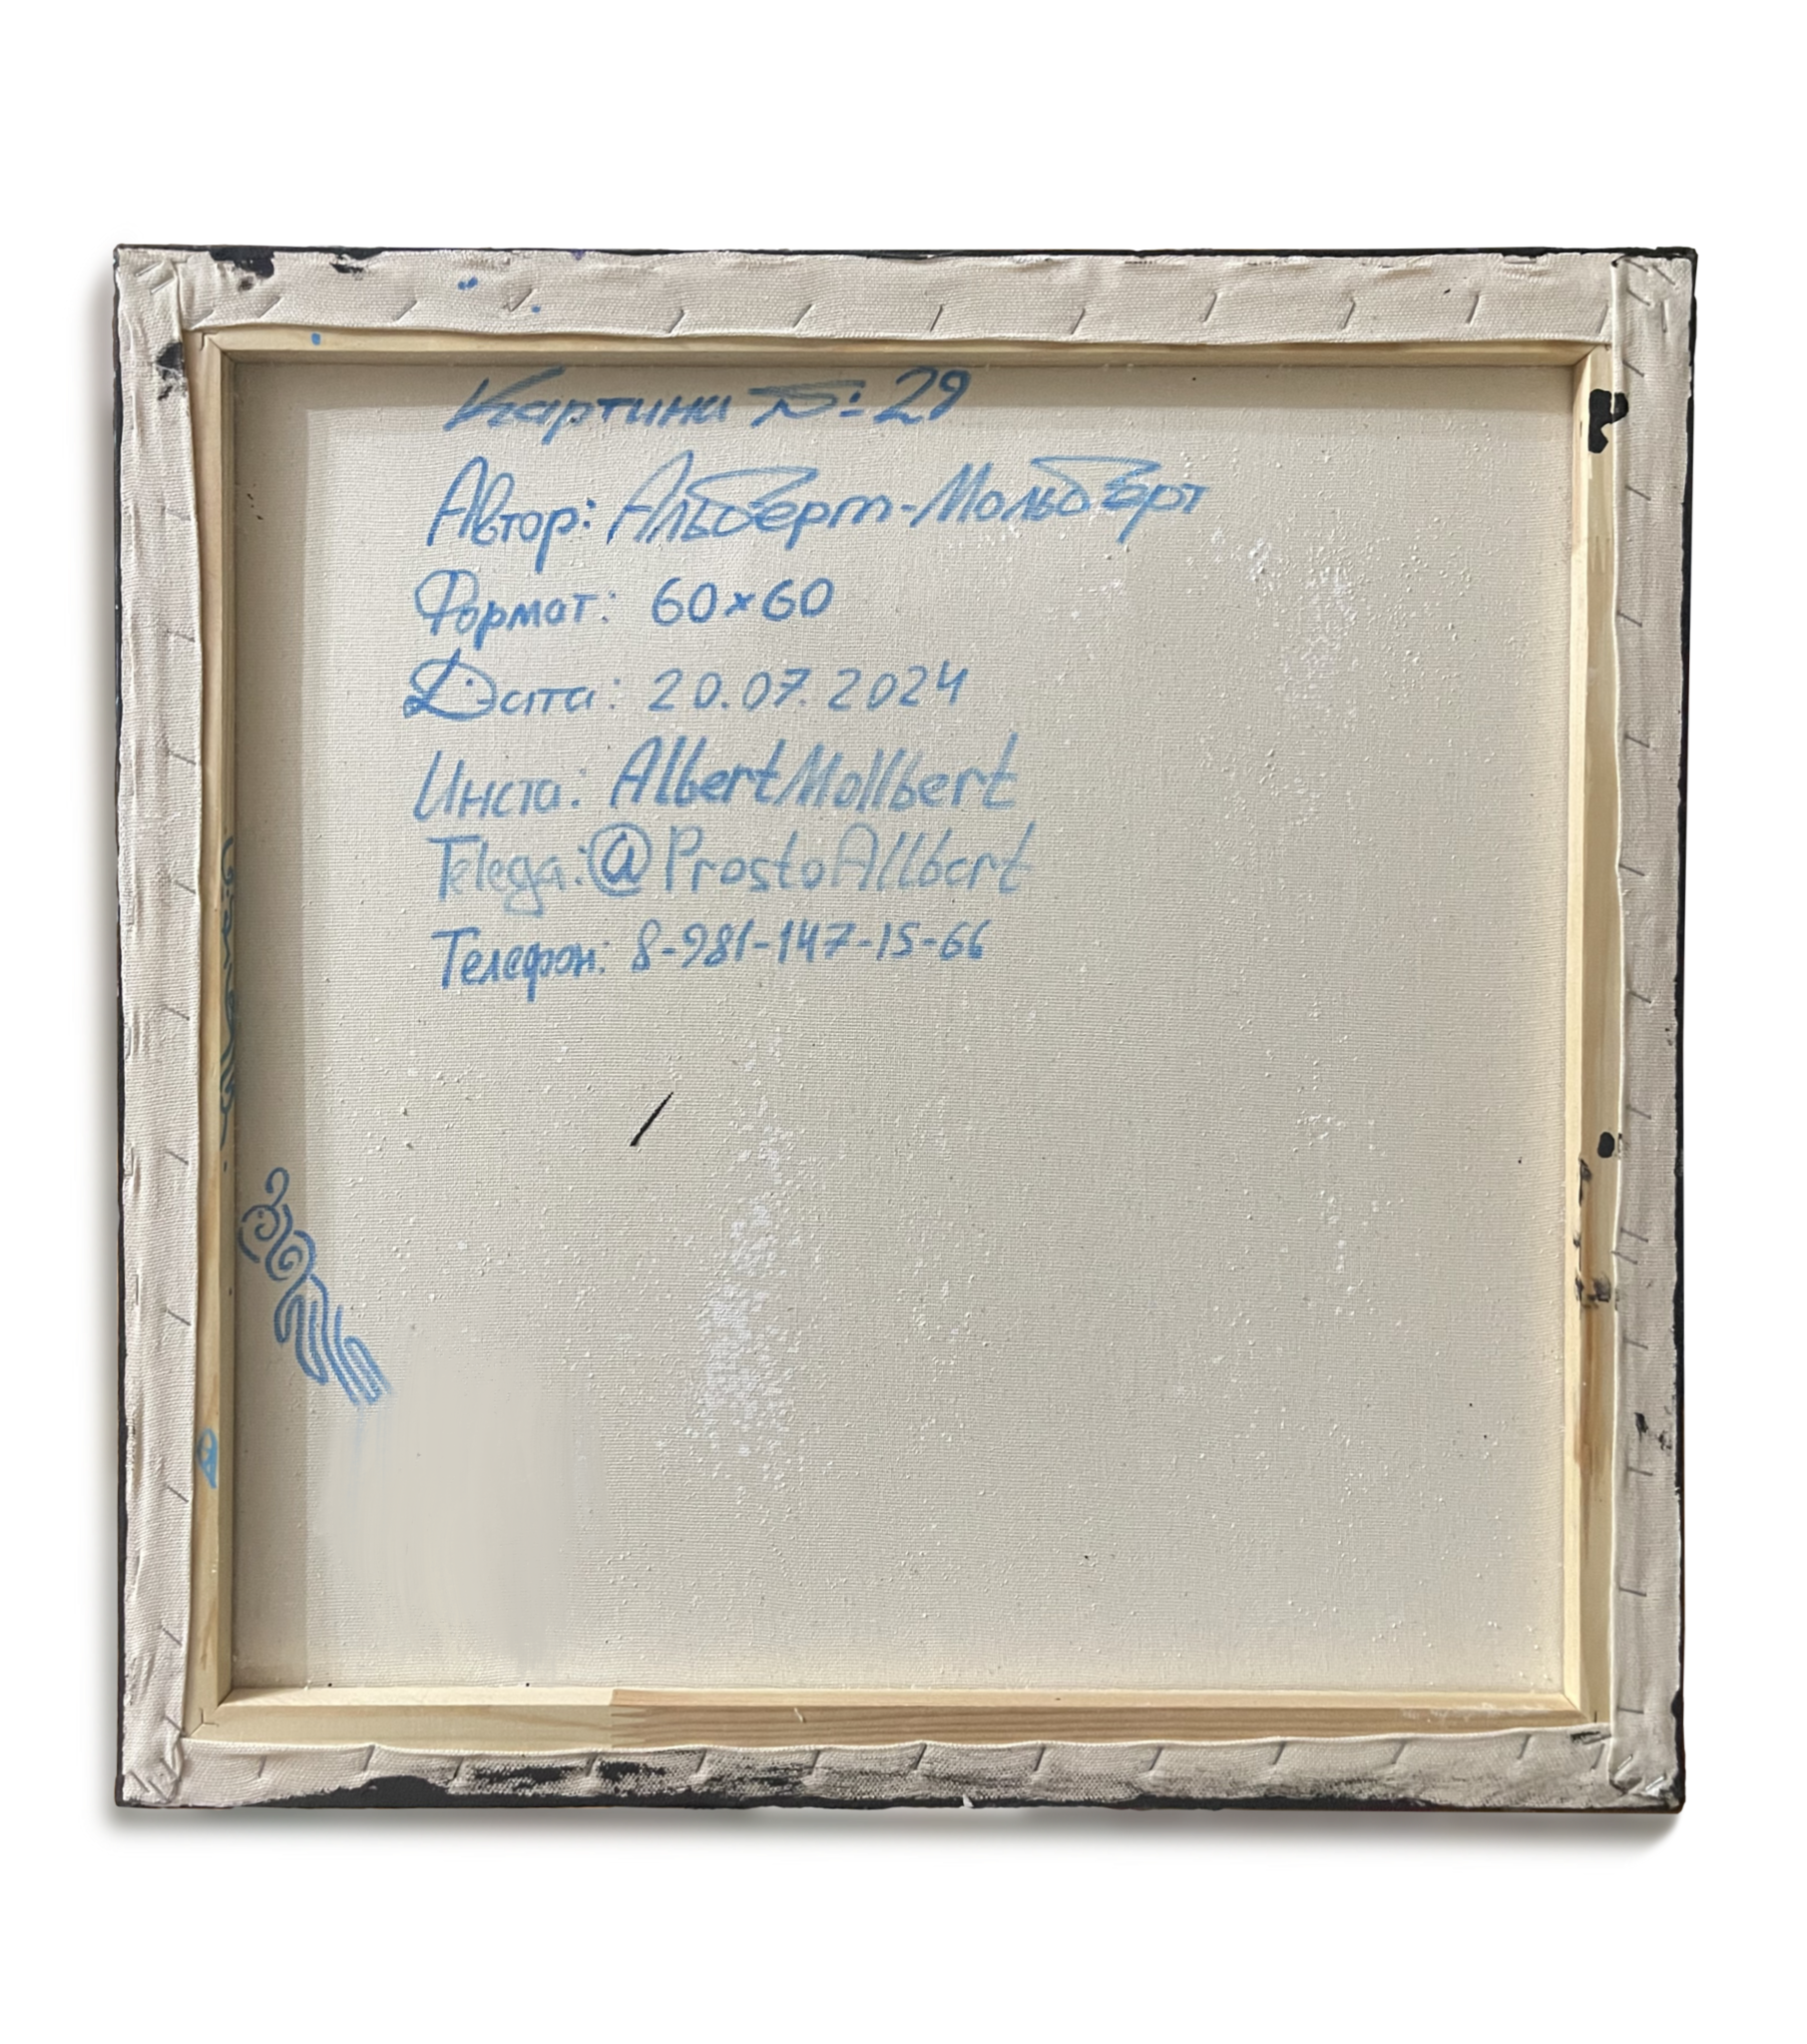 Картина №: 29
Автор: Альберт-Мольберт
Формат: 60×60
Дата: 20.07.2024
Инста: AlbertMollbert
Telega: @ProstoAllbert
Телефон: 8-981-147-15-66